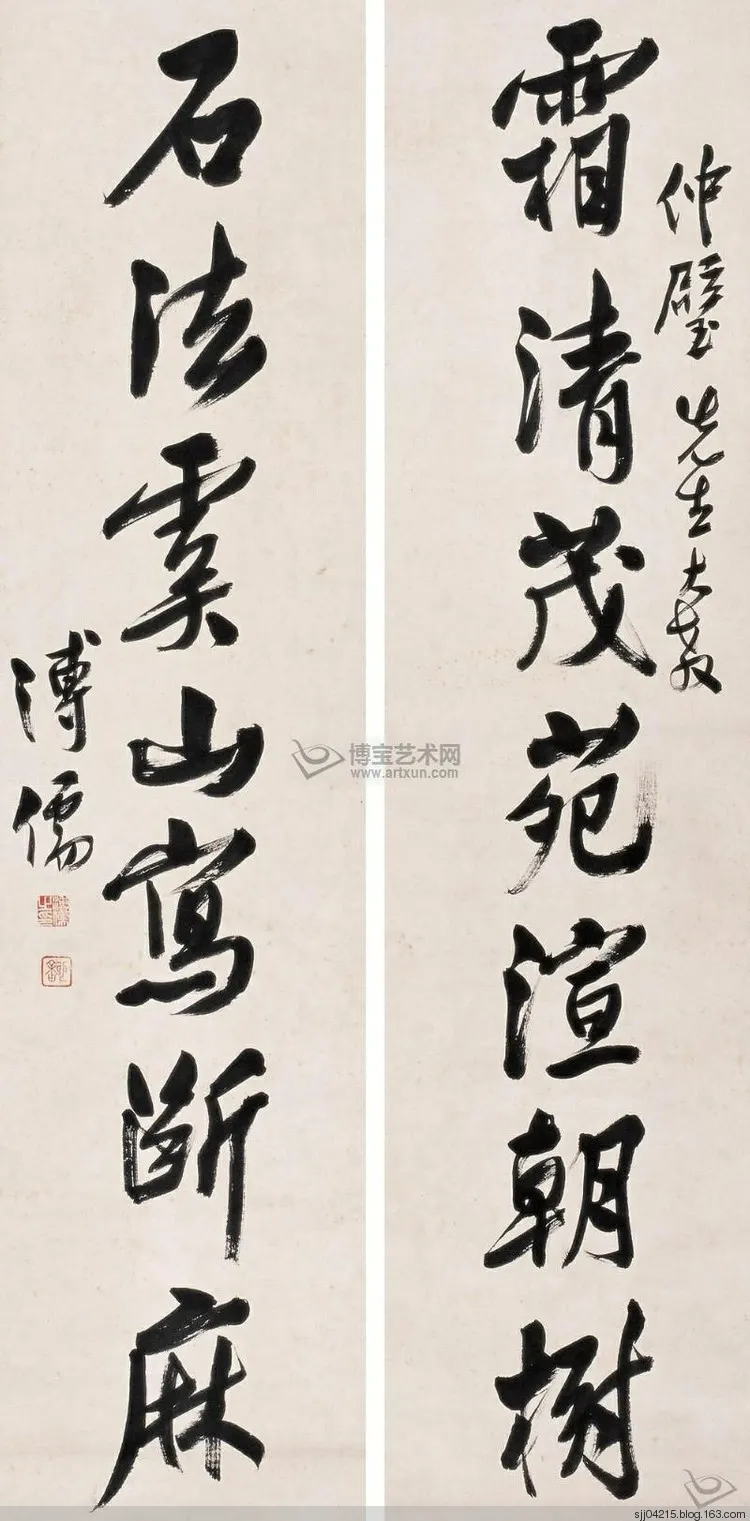 仲璧先生大教
霜清茂苑渲朝樹
石法虞山寫斷麻
溥儒
博宝艺术网
www.artxun.com
sjj04215.blog.163.com